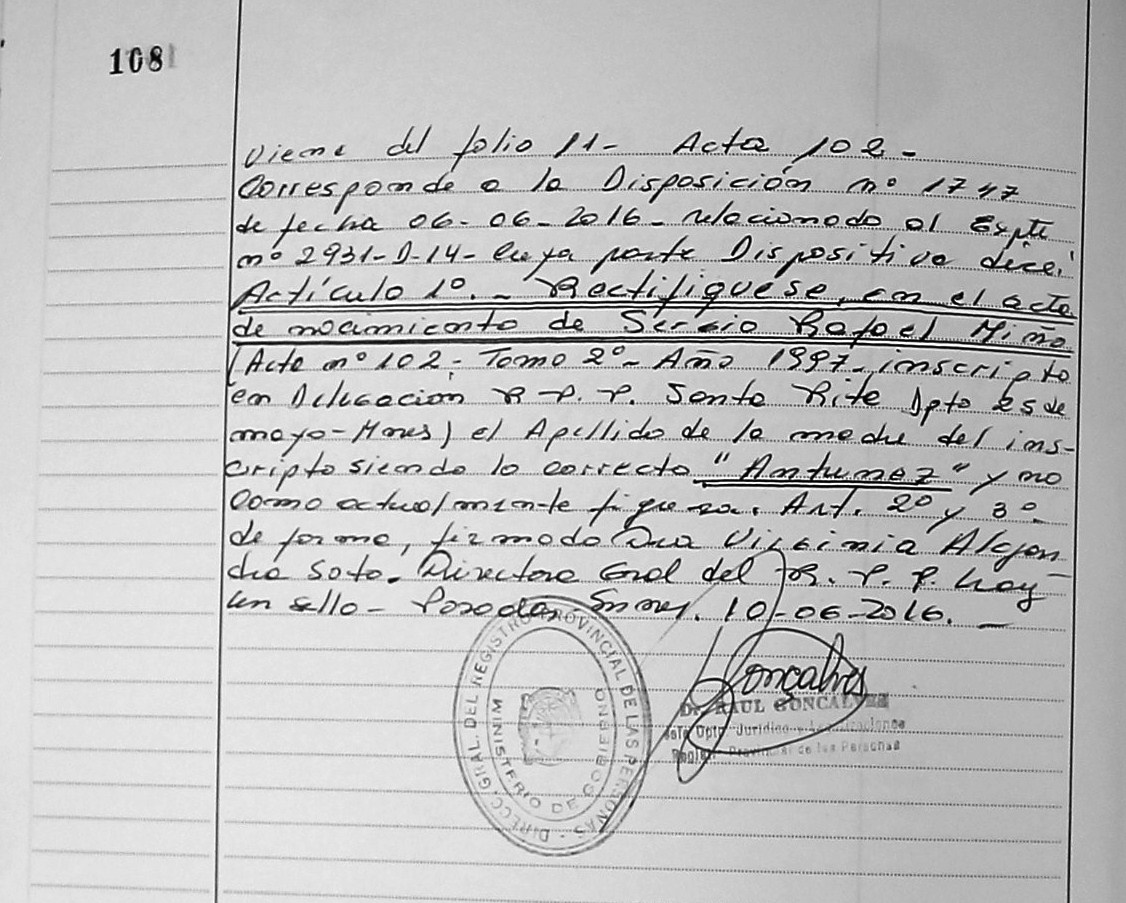 108
Viene del folio 11- Acta 102-
Corresponde a la Disposición nº 1747
de fecha 06-06-2016- relacionado al Expte
nº 2931-D-14- cuya parte Dispositiva dice:
Artículo 1º.- Rectifiquese, en el acta
de nacimiento de Sergio Rafael Miño
(Acta nº 102- Tomo 2º- Año 1997- inscripto
en Delegación R.P.P. Santa Rita Dpto 25 de
mayo-Mnes) el Apellido de la madre del ins-
cripto siendo lo correcto "Antunez" y no
como actualmente figura. Art. 2º y 3º
de forma, firmado Dra Virginia Alejan-
dra Soto. Directora Gral del R.P.P. hay
un sello- Posadas, Mnes. 10-06-2016.-
DIRECC. GRAL. DEL REGISTRO PROVINCIAL DE LAS PERSONAS -
MINISTERIO DE GOBIERNO
Gonçalves
Dr. RAUL GONCALVES
Jefe Dpto. Jurídico y Legalizaciones
Registro Provincial de las Personas